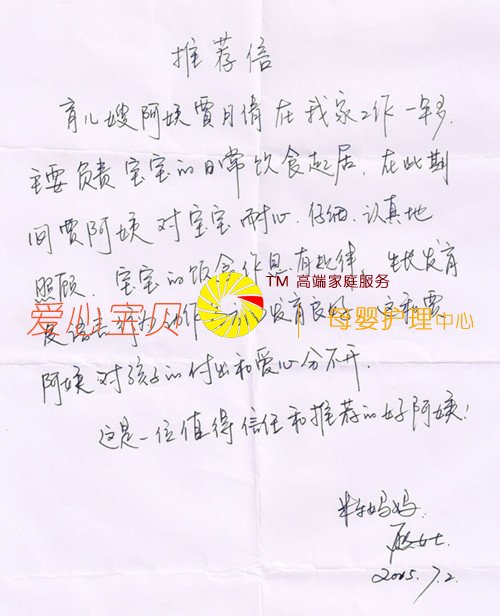 推荐信
育儿嫂阿姨贾月倩在我家工作一年多.
主要负责宝宝的日常饮食起居.在此期
间贾阿姨对宝宝耐心、仔细、认真地
照顾、宝宝的饭食作息有规律、生长发育
TM 高端家庭服务
爱心宝贝 母婴护理中心
发育良好
阿姨对孩子的付出和爱心分不开.
这是一位值得信任和推荐的好阿姨!
妈妈
2005.7.2